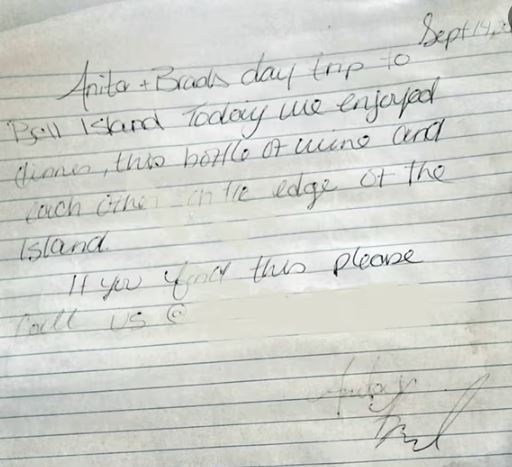 Sept 14, 2
Anita + Brads day trip to
Bell Island Today we enjoyed
dinner, this bottle of wine and
each other on the edge of the
Island
If you find this please
Call us @
Anita
Brad